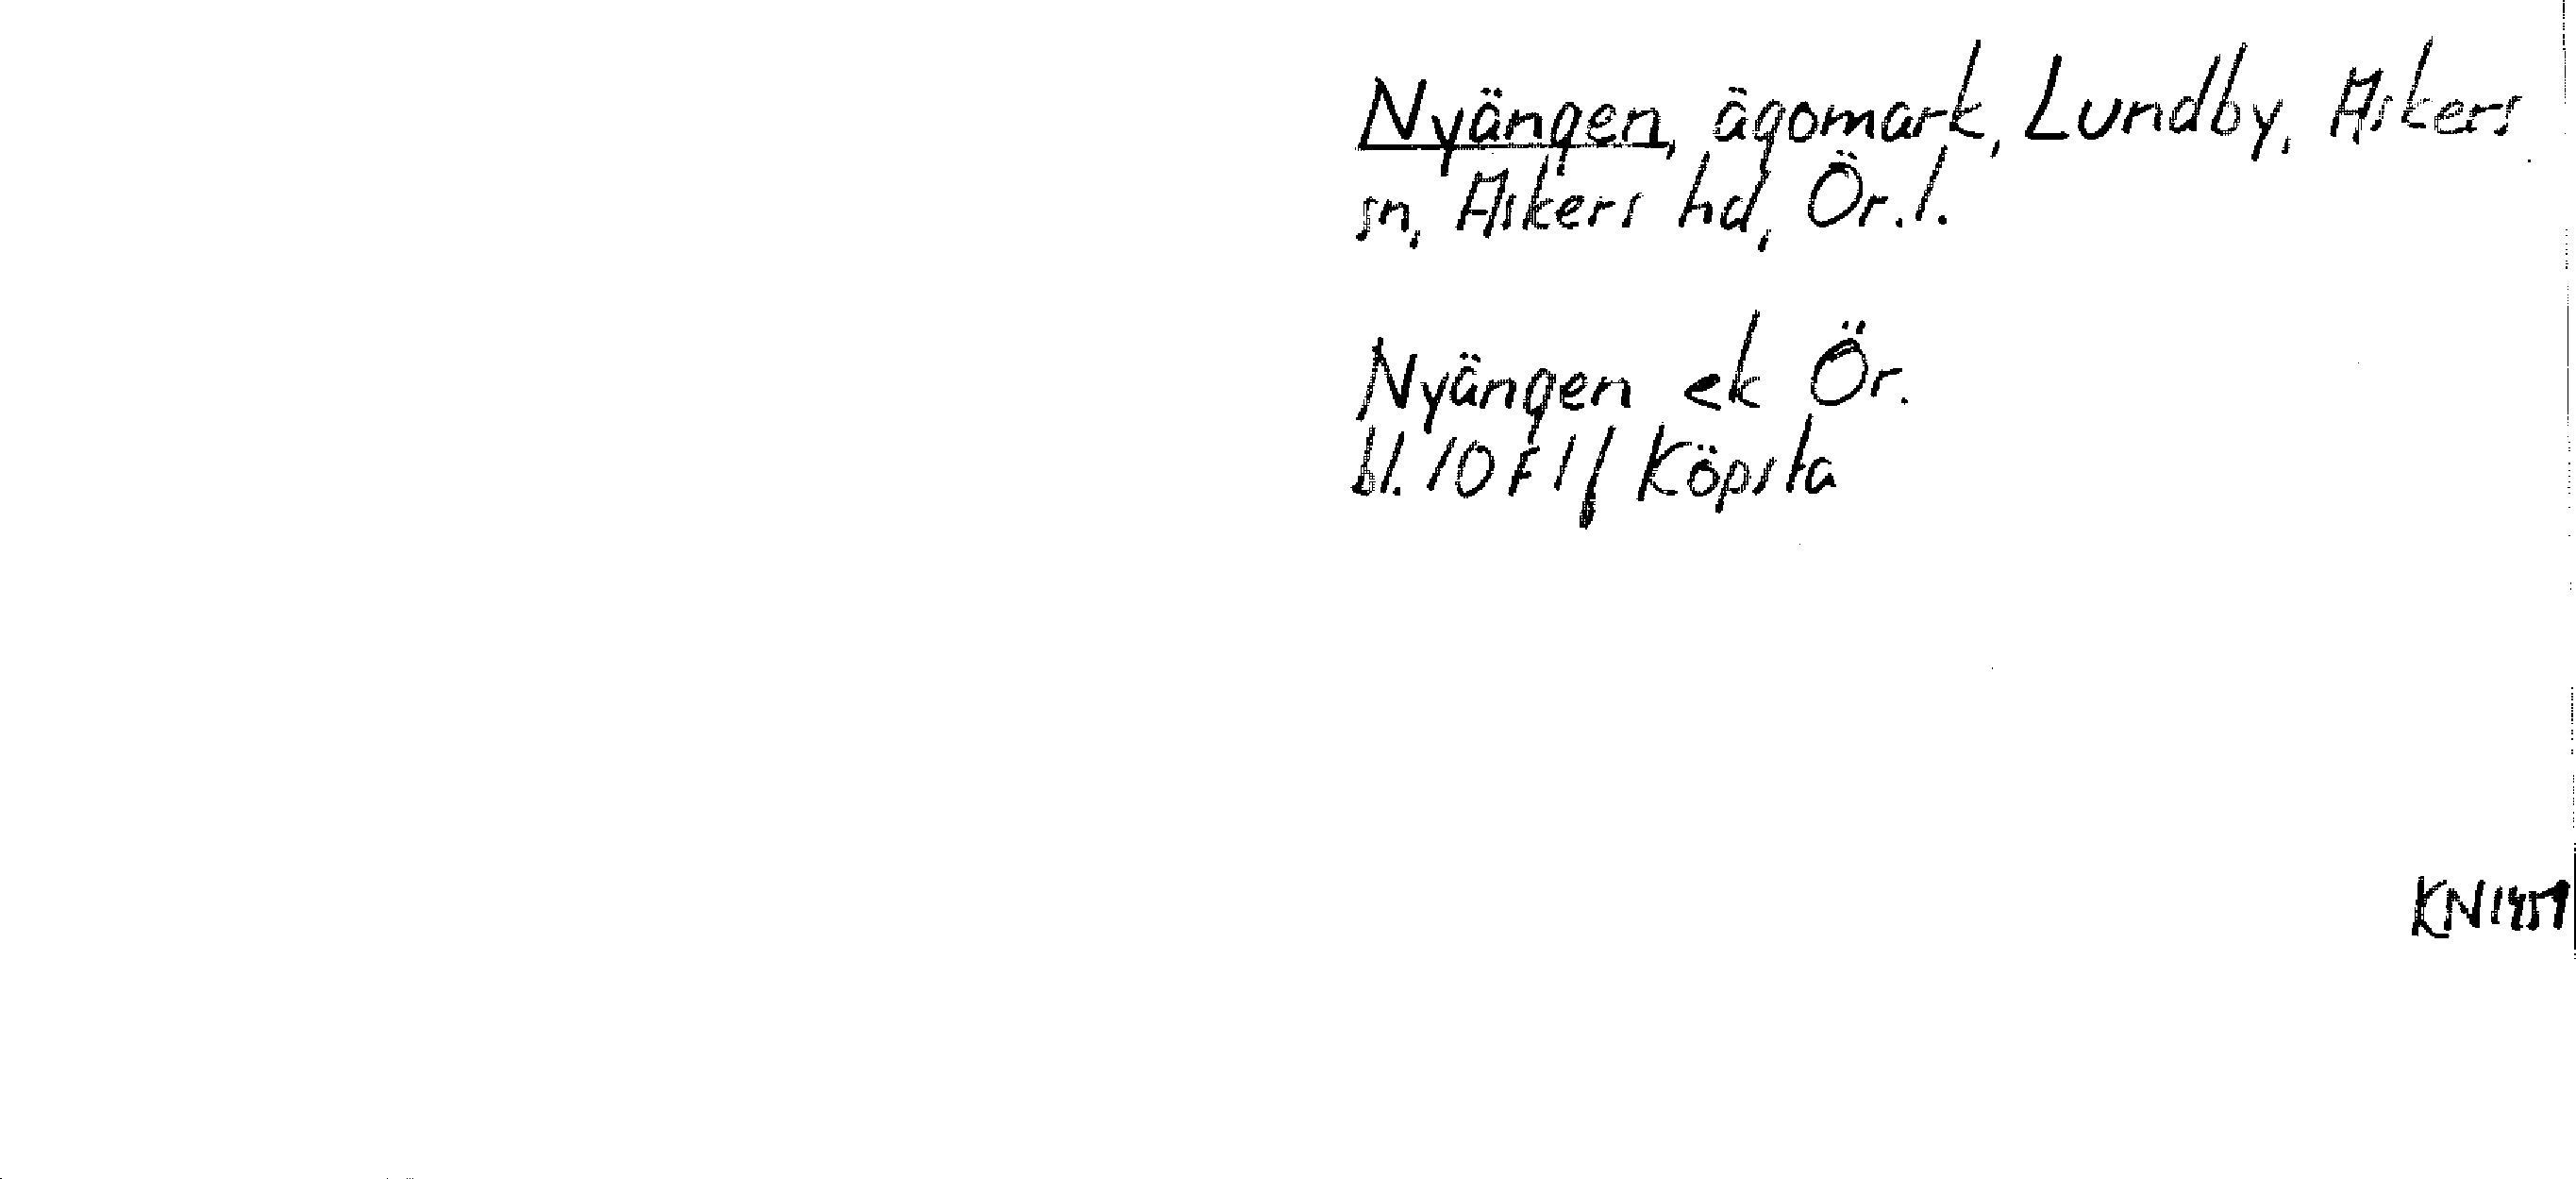 Nyängen, ägomark, Lundby, Askers
sn, Askers hd, Ör.l.
Nyängen ek Ör.
bl. 10 F 1 f Köpsta